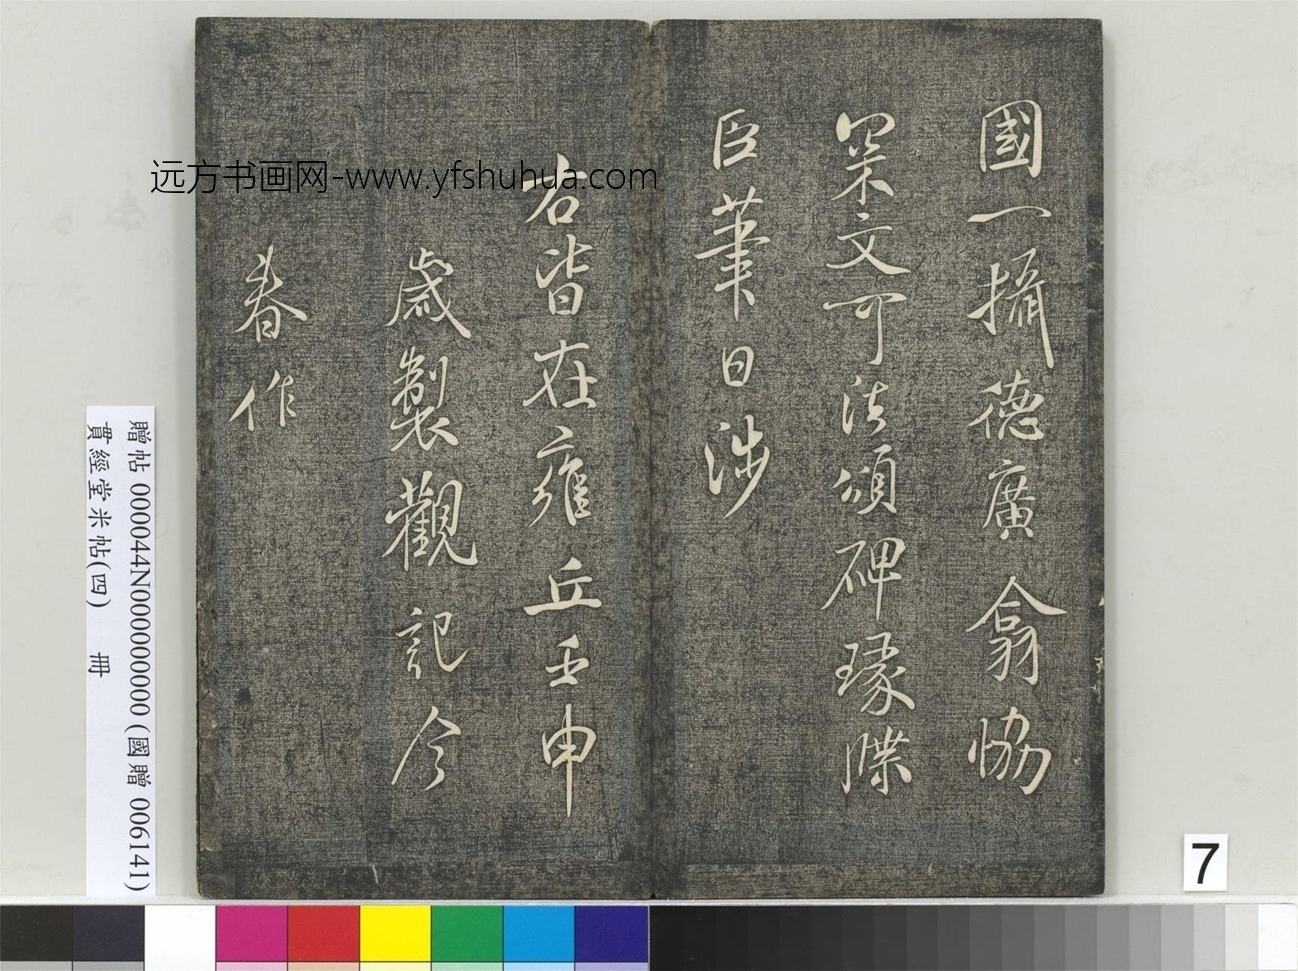 國一攝德廣翕協
罙文可法頌碑瑑牒
臣筆日涉
右皆在雍丘壬申
歲製觀記今
春作
远方书画网-www.yfshuhua.com
贈帖 000044N000000000 (國贈 006141)
貫經堂米帖(四) 冊
7